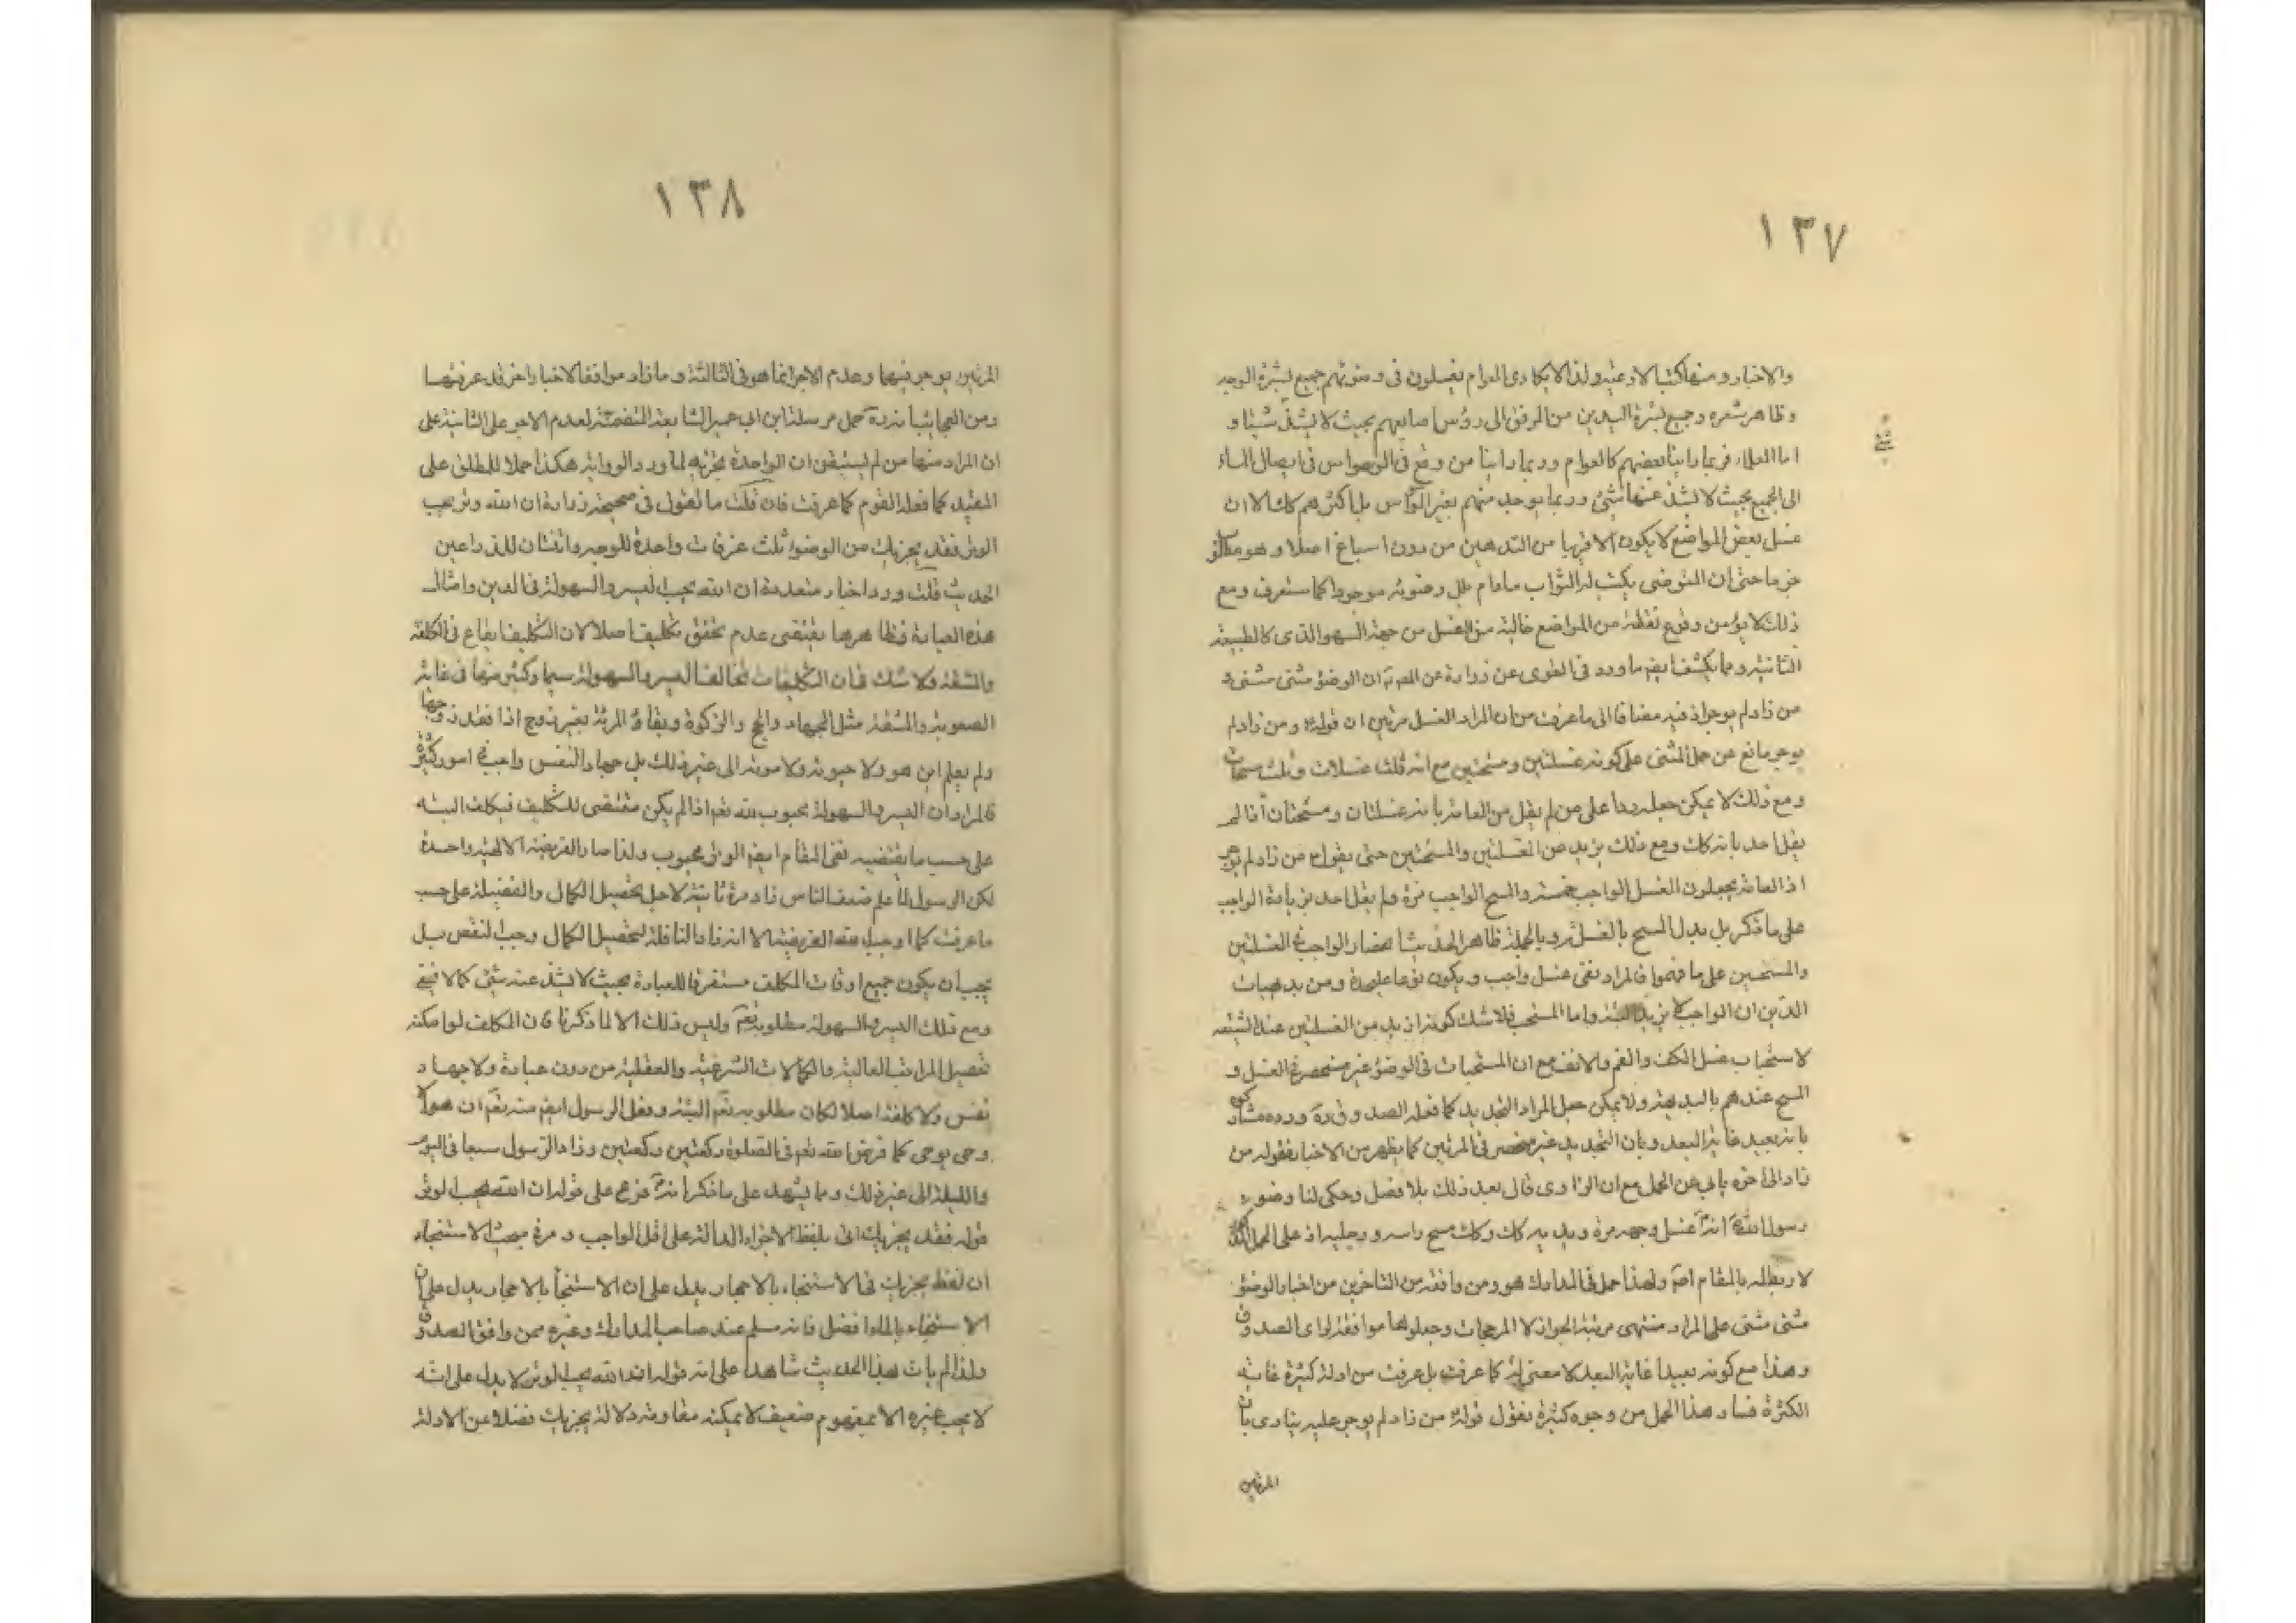 ١٣٧
والاخبار ومنها كتب الادعية ولذا لا يكاد يرى العوام يغسلون فى وضوئهم جميع بشرة الوجه
وظاهر شعره وجميع بشرة اليدين من المرفق الى رؤس اصابعهم بحيث لا يشذ شيئا و
اما العلماء فربما راينا بعضهم كالعوام وربما راينا من وقع فى الوسواس فى ايصال الماء
الى الجميع بحيث لا يشذ عنها شئ وربما يوجد منهم بغير الوسواس بل اكثرهم كك الا ان
غسل بعض المواضع لا يكون الا قريبا من التدهين من دون اسباغ اصلا وهو مطلوب
جزما حتى ان المتوضى يكتب له الثواب مادام بلل وضوئه موجودا كما ستعرف ومع
ذلك لا يؤمن وقوع نقطة من المواضع خالية من الغسل من جهة السهو الذى كالطبيعة
الثانية ومما يكشف ايضا ما ورد فى القوى عن زرارة عن الص ان الوضوء مثنى مثنى و
من زاد لم يوجر اذ فيه مضافا الى ما عرفت من ان المراد الغسل مرتين ان قوله ومن زاد لم
يوجر مانع عن حمل المثنى على كونه غسلتين ومسحتين مع انه ثلث غسلات وثلث مسحات
ومع ذلك لا يمكن جعله ردا على من لم يقل من العامة بانه غسلتان ومسحتان اذ لم
يقل احد بانه كك ومع ذلك يزيد من الغسلتين والمسحتين حتى يقول من زاد لم يوجر
اذ العامة يجعلون الغسل الواجب خمسة والمسح الواجب مرة ولم يقل احد بزيادة الواجب
على ما ذكر بل يبدل المسح بالغسل وبالجملة ظاهر الحديث انحصار الواجب فى الغسلتين
والمسحتين على ما فهموا فالمراد نفى غسل واجب ويكون نوعا عليحدة ومن بديهيات
الدين ان الواجب لا يزيد البتة واما المستحب فلا شك كونه ازيد من الغسلتين عند الشيعة
لاستحباب غسل الكف والفم والانف مع ان المستحبات فى الوضوء غير منحصر فى الغسل و
المسح عندهم بالبديهة ولا يمكن حمل المراد التجديد كما فعله الصدوق ره ورده مشاركوه
بانه بعيد غاية البعد وبان التجديد غير منحصر فى المرتين كما يظهر من الاخبار فقوله من
زاد الى اخره يابى عن الحمل مع ان الراوى قال بعد ذلك بلا فصل وحكى لنا وضوء
رسول الله انه غسل وجهه مرة ويديه كك وكك مسح راسه ورجليه اذ على الحمل
لا ربط له بالمقام اصلا ولهذا حمل فى المدارك هو ومن وافقه من المتاخرين من اخبار الوضوء
مثنى مثنى على المراد منتهى مرتبة الجواز لا المرجحات وجعلوها موافقة لراى الصدوق
وهذا مع كونه بعيدا غاية البعد لا معنى له كما عرفت بل عرفت من ادلة كثيرة غاية
الكثرة فساد هذا الحمل من وجوه كثيرة نقول قوله من زاد لم يوجر عليه ينادى بان
المرتين
١٣٨
المرتين يوجر فيهما وعدم الاجر انما هو فى الثالثة وما زاد موافقا لاخبار اخر قد عرفتها
ومن العجائب انه ره حمل مرسلة ابن ابى عمير السابعة المتضمنة لعدم الاجر على الثانية على
ان المراد منها من لم يستيقن ان الواحدة تجزيه لما ورد الرواية هكذا حملا للمطلق على
المقيد كما فعله القوم كما عرفت فان قلت ما تقول فى صحيحة زرارة ان الله وتر يحب
الوتر فقد يجزيك من الوضوء ثلث غرفات واحدة للوجه واثنتان للذراعين
الحديث قلت ورد اخبار متعددة ان الله يحب اليسر والسهولة فى الدين وامثال
هذه العبارة فظاهرها يقتضى عدم تحقق تكليف اصلا لان التكليف ايقاع فى الكلفة
والمشقة ولا شك فى ان التكليفات تخالف اليسر والسهولة سيما وكثير منها فى غاية
الصعوبة والمشقة مثل الجهاد والحج والزكوة وبقاء المرئة بغير زوج اذا فقد زوجها
ولم يعلم اين هو ولا حيوته ولا موته الى غير ذلك بل جهاد النفس واجب فى امور كثيرة
فالمراد ان اليسر والسهولة محبوب لله تعم اذا لم يكن مقتضى للتكليف فيكلف البتة
على حسب ما يقتضيه ففى المقام ايضم الوتر محبوب ولذا صار الفريضة الالهية واحدة
لكن الرسول لما علم ضعف الناس زاد مرة ثانية لاجل تحصيل الكمال والفضيلة على حسب
ما عرفت كما اوجب الله الفريضة الا انه زاد النافلة لتحصيل الكمال وجبر النقص بل
يحب ان يكون جميع اوقات المكلف مستغرقا للعبادة بحيث لا يشذ عنه شئ كما لا يخفى
ومع ذلك اليسر والسهولة مطلوبه تعم وليس ذلك الا لما ذكرنا فان المكلف لو امكنه
تحصيل المراتب العالية والكمالات الشرعية والعقلية من دون عبادة ولا جهاد
نفس ولا كلفة اصلا لكان مطلوبه تعم البتة وفعل الرسول ايضم منه تعم ان هو الا
وحى يوحى كما فرض الله تعم فى الصلوة ركعتين ركعتين وزاد الرسول سبعا فى اليوم
والليلة الى غير ذلك ومما يشهد على ما ذكر انه فرع على قوله ان الله يحب الوتر
قوله فقد يجزيك اتى بلفظ الاجزاء الدالة على اقل الواجب ومر فى مبحث الاستنجاء
ان لفظ يجزيك فى الاستنجاء بالاحجار يدل على ان الاستنجا بالاحجار يدل على ان
الاستنجاء بالماء افضل فانه مسلم عند صاحب المدارك وغيره ممن وافق الصدوق
ولذا لم يات بهذا الحديث شاهدا على انه قوله ان الله يحب الوتر لا يدل على انه
لا يحب غيره الا بمفهوم ضعيف لا يمكنه مقاومة دلالة يجزيك فضلا عن الادلة